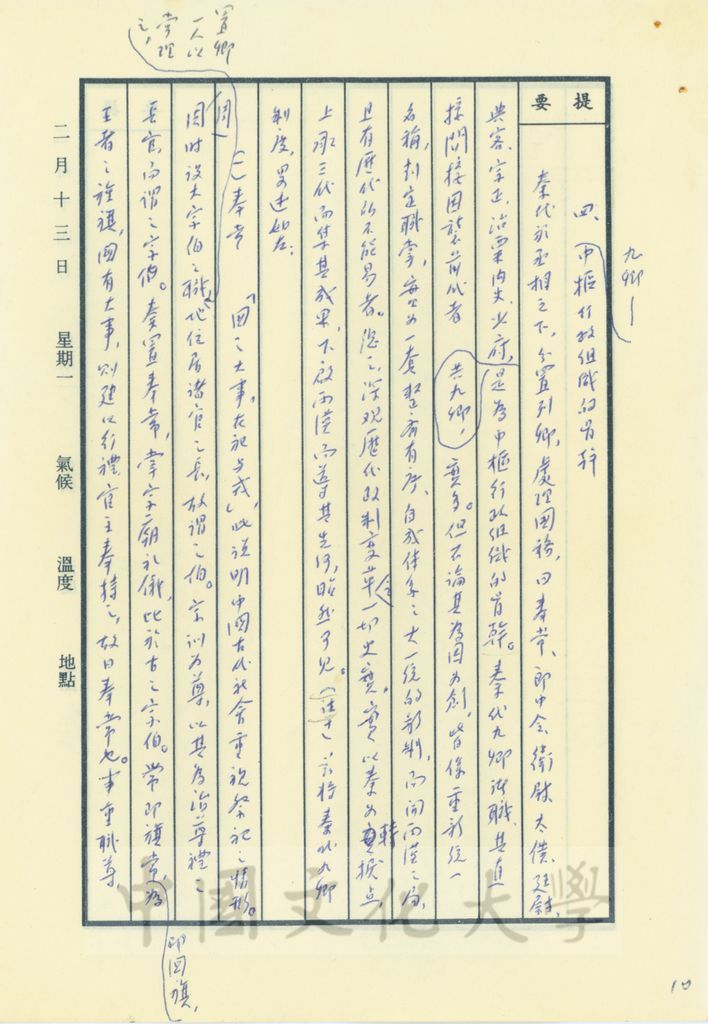 提要
九卿—
四、中樞行政組織的骨幹
秦代於丞相之下,分置列卿,處理國務,曰奉常、郎中令、衛尉、太僕、廷尉、
典客、宗正、治粟內史、少府,是為中樞行政組織的骨幹。秦代九卿諸職,其直
接間接因襲前代者
共九卿,
實多。但不論其為因為創,皆係重新統一
名稱,制定職掌,
一套整齊有序、自成體系之大一統的新制,而開兩漢之局,
且有歷代所不能易者。
深觀歷代政制變革
一切史實,實以秦為
轉捩点,
上承三代而集其成果,下啟兩漢而導其先河,昭然可見。
茲將秦代九卿
制度,畧述如左:
(一)奉常
「國之大事,在祀与戎」,此說明中國古代社會重視祭祀之情形。
周
周時設大宗伯之職,
置卿
一人以
掌理
之,
位居諸官之長,故謂之伯。宗訓為尊,以其為治尊禮之
長官,而謂之宗伯。秦置奉常,掌宗廟礼儀,比於古之宗伯。常即旗常,為
即國旗,
王者之旌旗,國有大事,則建以行禮,官主奉持之,故曰奉常也。事重職尊
二月十三日
星期一
氣候
溫度
地點
中國文化大學
10